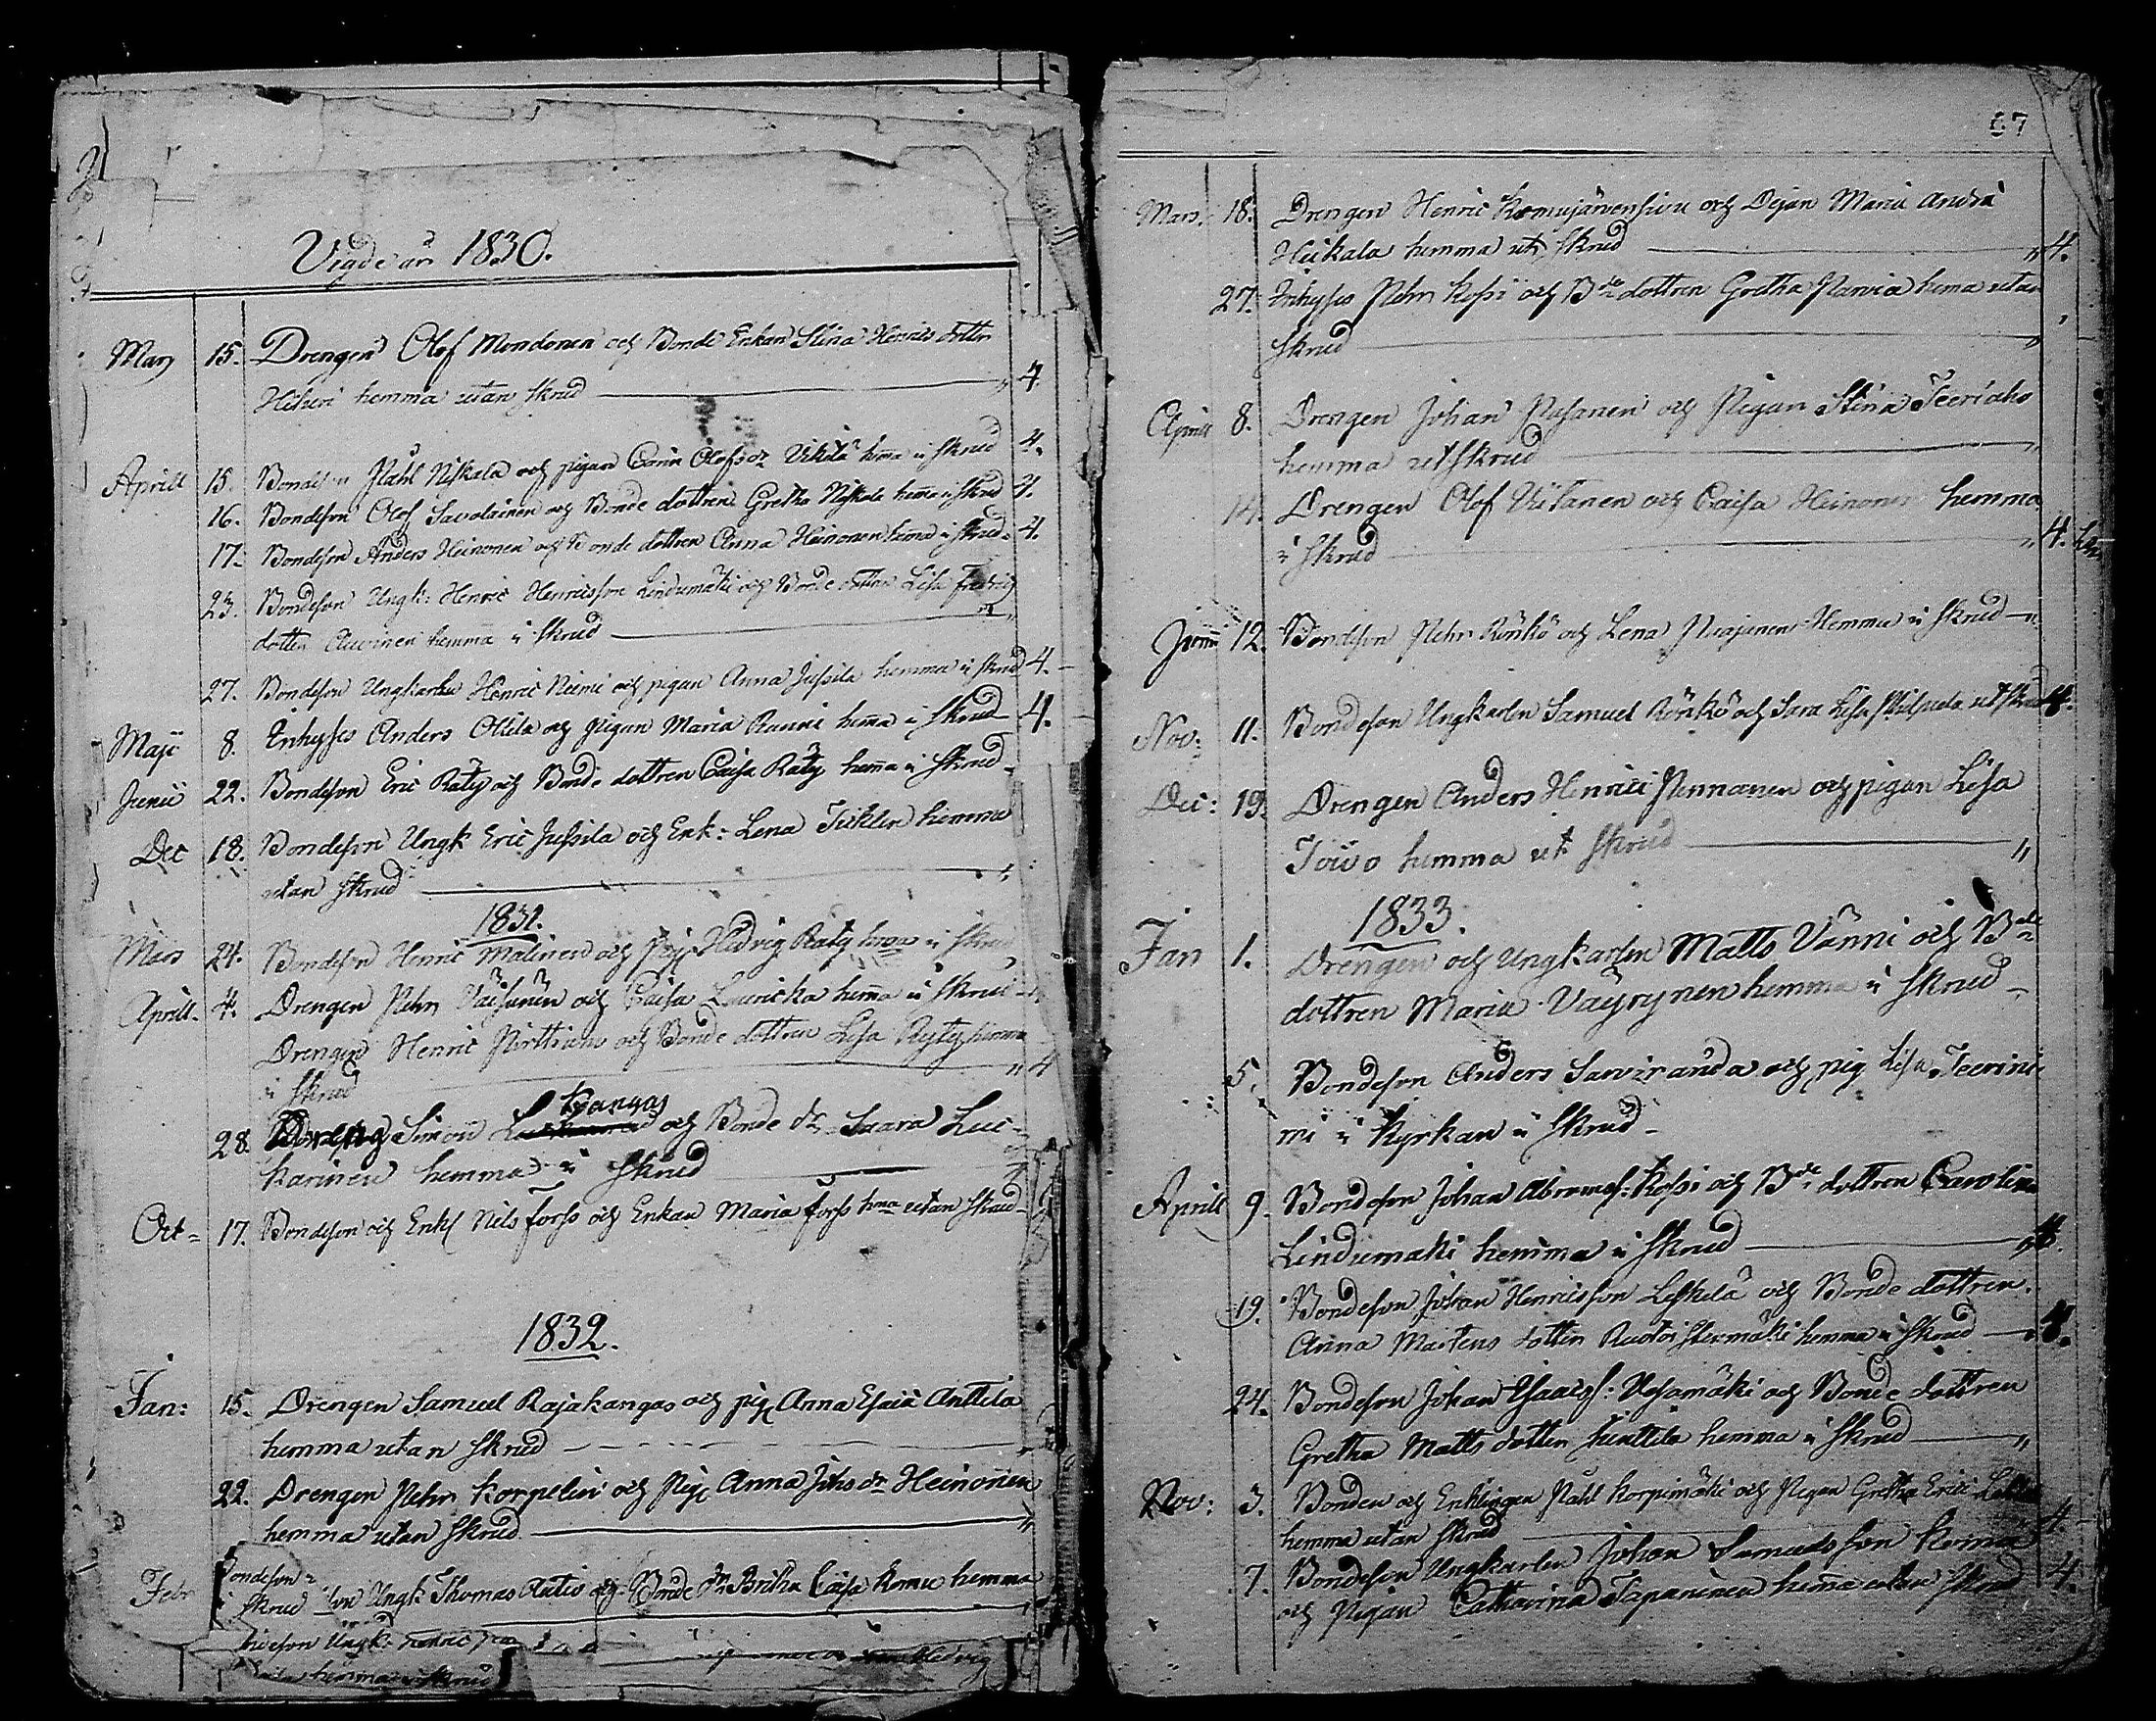 Vigde år 1830.
Mars 15. Drengen Olof Mondonen och Bonde Enkan Stina Henrics dotter
hemma utan skrud 4
Aprill 15. Bondeson Påhl Niskala och pigan Carin Olofsdr hma i skrud 4.
16. Bondeson Olof Savolainen och Bonde dottren Gretha Niskala hema i skrud 4.
17. Bondeson Anders Heinonen och Bonde dottren Anna Heinonen hema i skrud 4.
23. Bondeson Ungk: Henric Henricsson Lindumäki och Bonde dottren Lisa Fredric
dotter hemma i skrud
27. Bondeson Ungkarlen Henric Niemi och pigan Anna Jussila hemma i skrud 4.
Maji 8. Inhyses Anders Ollila och pigan Maria Rauni hema i skrud 4.
Junii 22. Bondeson Eric Räty och Bonde dottren Caisa Räty hema i skrud
Dec 18. Bondeson Ungk Eric Jussila och Enk: Lena hemma
utan skrud
1831.
Mars 24. Bondeson Henric Malinen och Pig: Hedvig Räty hema i skrud
Aprill 4. Drengen Pehr Väisänen och Caisa hema i skrud
Drengen Henric och Bonde dottren Lisa Ryty hemma
i skrud 4
28. Dreng Simon Kangas och Bonde dr Saara Luc-
karinen hemma i skrud
Oct 17. Bondeson och Enkl Nils Forss och Enkan Maria Forss hma utan skrud
1832.
Jan: 15. Drengen Samuel Rajakangas och pig Anna Esaiæ Anttila
hemma utan skrud
22. Drengen Pehr Korpelin och Pig Anna Johs dr Heinonen
hemma utan skrud
Febr Bondeson
skrud Ungk Thomas och Bonde dr Britha Caisa Komu hemma
Ungk: Henric Hedvig
hemma i skrud
67
Mars 18. Drengen Henric Kemijärvensivu och Pigan Maria Andrs
Heikala hemma ut skrud 4.
27. Inhyses Pehr Kossi och Bde dottren Gretha Parvia hema utan
skrud
Aprill 8. Drengen Johan Pasanen och Pigan Stina Teeriaho
hemma ut skrud
14. Drengen Olof Viitanen och Caisa Heinonen hemma
i skrud 4.
Junii 12. Bondeson Pehr Rönkö och Lena Hemma i skrud
Nov: 11. Bondeson Ungkarlen Samuel Rönkö och Sara Lisa ut skrud 4.
Dec: 19. Drengen Anders Henrici Pennanen och pigan Lisa
Toivo hemma ut skrud
1833.
Jan 1. Drengen och Ungkarlen Matts Vänni och Bde
dottren Maria Väyrynen hemma i skrud
5. Bondeson Anders Sarviranda och pig Lisa Teerini-
mi i Kyrkan i skrud
Aprill 9. Bondeson Johan Abramss: Kossi och Bde dottren Carolina
Lindumäki hemma i skrud 4.
19. Bondeson Johan Henricsson Leskelä och Bonde dottren
Anna Martens dotter hemma i skrud 4.
24. Bondeson Johan Isaacss: Vesamäki och Bonde dottren
Gretha Matts dotter Huittila hemma i skrud
Nov: 3. Bonden och Enklingen Påhl Korpimäki och Pigan Gretha Erici
hemma utan skrud 4.
7. Bondeson Ungkarlen Johan Samuelsson
och Pigan Catharina Tapaninen hema utan skrud 4.